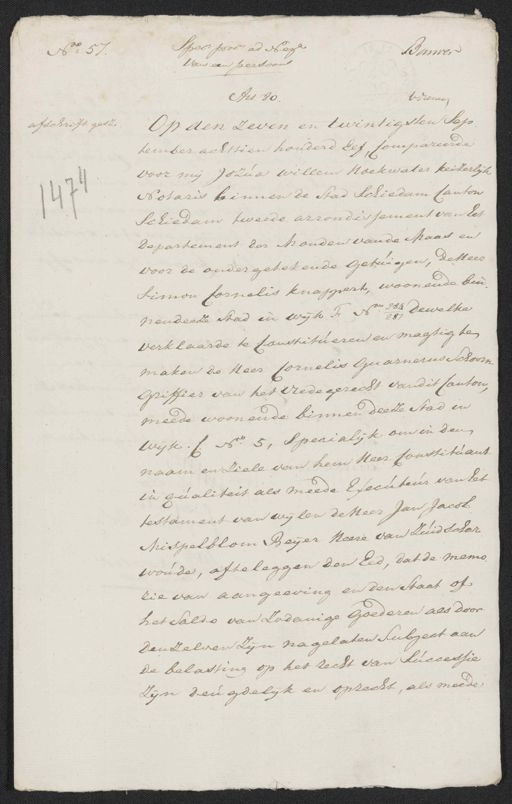 No. 57.
van een persoon
Act 20.
afschrift gest.
1474
Op den Zeven en twintigsten Sep
tember achttien honderd Elf, Compareerde
voor mij Jozua Willem Hoekwater keizerlijk
Notaris binnen de Stad Schiedam Canton
Schiedam tweede arrondissement van het
Departement der Monden vande Maas en
voor de ondergetekende Getuigen, De Heer
Simon Cornelis Knappert, woonende bin
nen deeze Stad in wijk F. No. 281 dewelke
verklaarde te Constitueeren en magtig te
maken de Heer Cornelis Guarnerus Schoorn
Griffier van het Vredegerecht van dit Canton,
meede woonende binnen deeze Stad in
wijk C No. 5, Specialijk om in den
naam en Ziele van hem Heer Constituant
in qualiteit als meede Executeur van het
testament van wijlen de Heer Jan Jacob
Mispelblom Beijer Heere van Zuidschar
woude, afteleggen den Eed, dat de memo
rie van aangeeving en den Staat of
het Saldo van Zodanige Goederen als door
den Zelven Zijn nagelaten Subject aan
de belasting op het recht van Successie
Zijn deugdelijk en oprecht, als meede